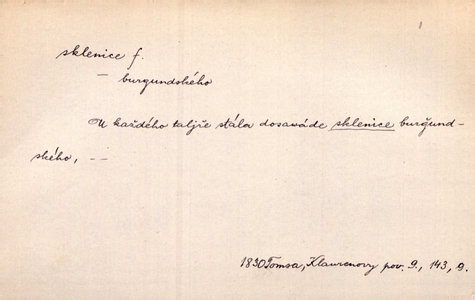 1
sklenice f.
— burgundského
U každého taljře stála dosawáde sklenice burgund-
ského, — —
1830 Tomsa, Klaurenovy pov. 9., 143, 9.